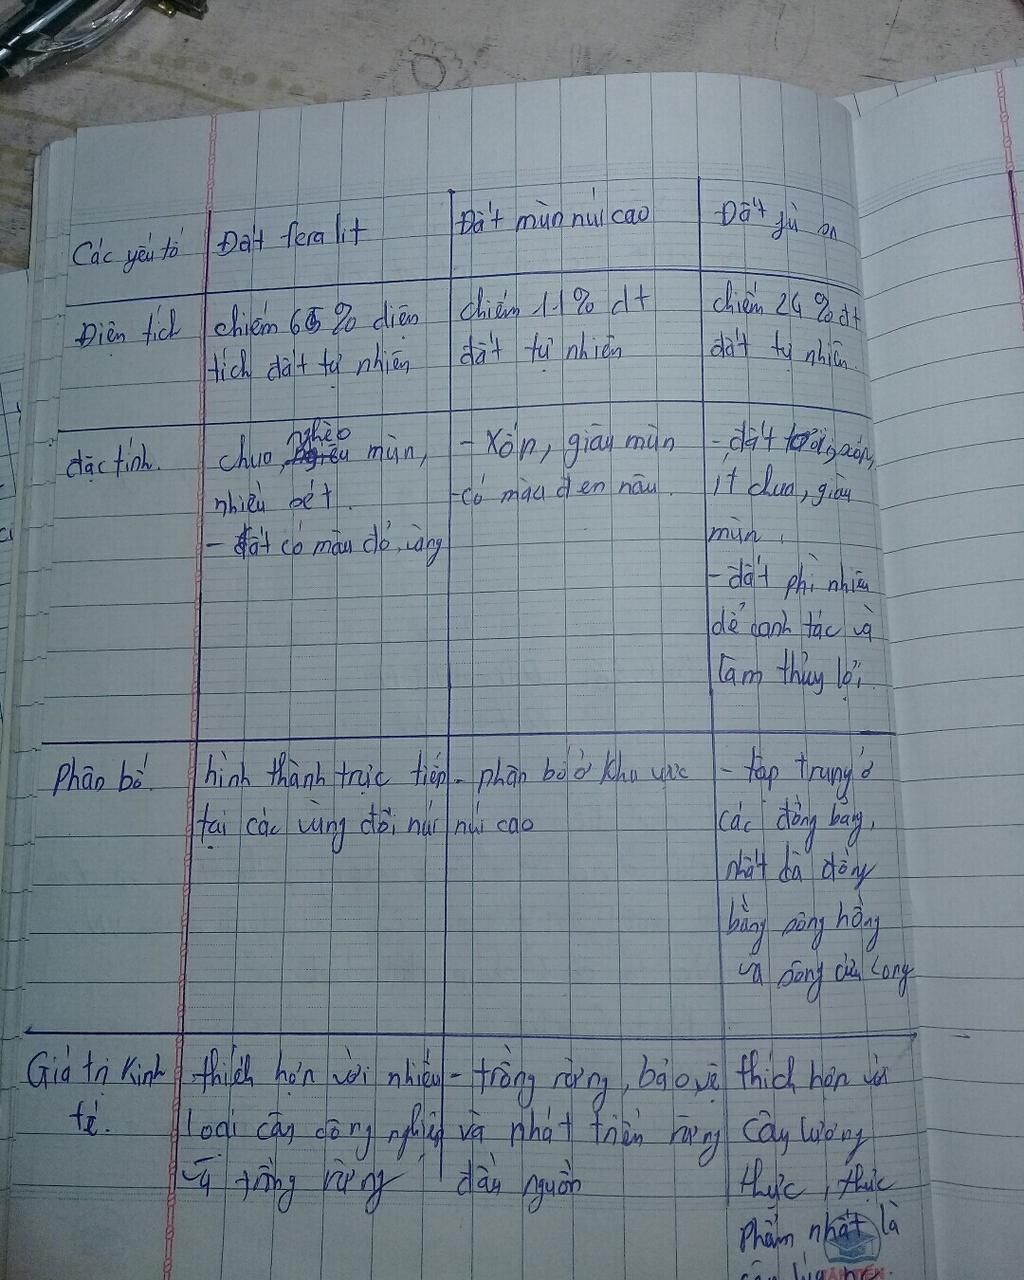 Các yếu tố
Đất feralit
Đất mùn núi cao
Đất phù sa
Diện tích
chiếm 65% diện
tích đất tự nhiên
chiếm 11% dt
đất tự nhiên
chiếm 24% dt
đất tự nhiên.
đặc tính.
chua, nghèo mùn,
nhiều sét.
- đất có màu đỏ, vàng
- Xốp, giàu mùn
- có màu đen nâu.
- đất tơi, xốp,
ít chua, giàu
mùn.
- đất phì nhiêu
dễ canh tác và
làm thủy lợi.
Phân bố.
hình thành trực tiếp
tại các vùng đồi núi
- phân bố ở khu vực
núi cao
- tập trung ở
các đồng bằng,
nhất là đồng
bằng sông hồng
và sông cửu Long
Giá trị kinh
tế.
thích hợp với nhiều
loại cây công nghiệp
và trồng rừng
- trồng rừng, bảo vệ
và phát triển rừng
đầu nguồn
thích hợp với
cây lương
thực, thực
phẩm nhất là